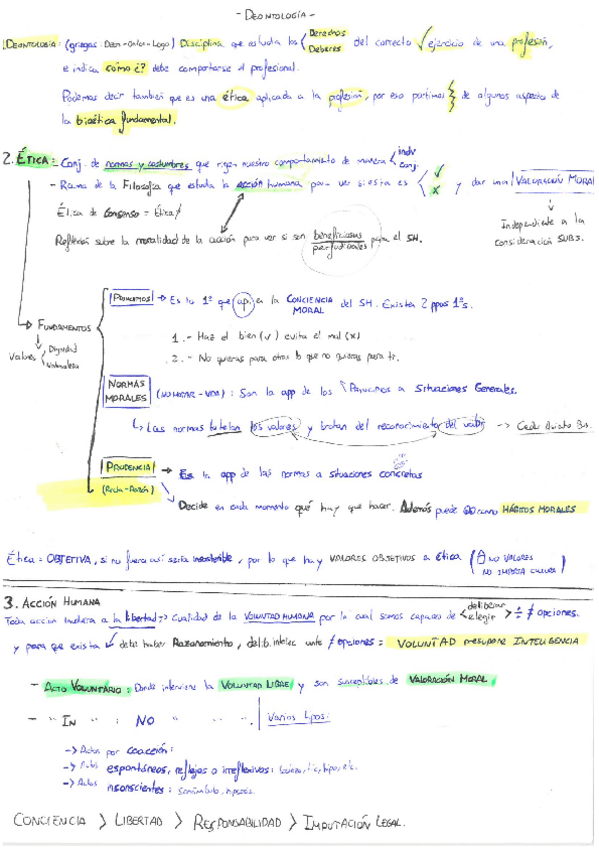 - DEONTOLOGÍA -
1. DEONTOLOGÍA: (griegas: Deon-Ontos-Logo) Disciplina que estudia los < Derechos Deberes del correcto ✓ ejercicio de una profesión,
e indica cómo ¿? debe comportarse el profesional.
Podemos decir también que es una ética aplicada a la profesión, por eso partimos de algunos aspectos de
la bioética fundamental.
2. ÉTICA: Conj. de normas y costumbres que rigen nuestro comportamiento de manera < indv. conj.
- Rama de la Filosofía que estudia la acción humana para ver si esta es < ✓ X y dar una VALORACIÓN MORAL
Ética de Consenso = Ética
↓ Independiente a la
consideración SUBJ.
Reflexión sobre la moralidad de la acción para ver si son beneficiosas perjudiciales para el SH.
PRINCIPIOS → Es lo 1º que ap. en la CONCIENCIA MORAL del SH. Existen 2 ppios 1ºs.
FUNDAMENTOS
Valores < Dignidad Naturaleza
1.- Haz el bien (✓) evita el mal (x)
2.- No quieras para otro lo que no quieras para ti.
NORMAS MORALES (NO MATAR - VIDA): Son la app de los PRINCIPIOS a Situaciones Generales.
↳ Las normas tutelan los valores y brotan del reconocimiento del valor →
PRUDENCIA → Es la app de las normas a situaciones concretas
(Recta-Razón)
Decide en cada momento qué hay que hacer. Además puede como HÁBITOS MORALES
Ética = OBJETIVA, si no fuera así sería insostenible, por lo que hay VALORES OBJETIVOS en ética ( NO VALORES
NO IMPORTA CULTURA )
3. ACCIÓN HUMANA
Toda acción a la libertad → Cualidad de la VOLUNTAD HUMANA por la cual somos capaces de < deliberar elegir > ≠ opciones.
y para que exista debe haber Razonamiento, delib. intelec ante ≠ opciones = VOLUNTAD presupone INTELIGENCIA
- ACTO VOLUNTARIO: Donde interviene la VOLUNTAD LIBRE y son susceptibles de VALORACIÓN MORAL.
- " IN " : NO " " " . Varios tipos:
→ Actos por coacción:
→ Actos espontáneos, reflejos o irreflexivos: tic, hipo, etc.
→ Actos inconscientes: sonámbulo, hipnosis.
CONCIENCIA > LIBERTAD > RESPONSABILIDAD > IMPUTACIÓN LEGAL.